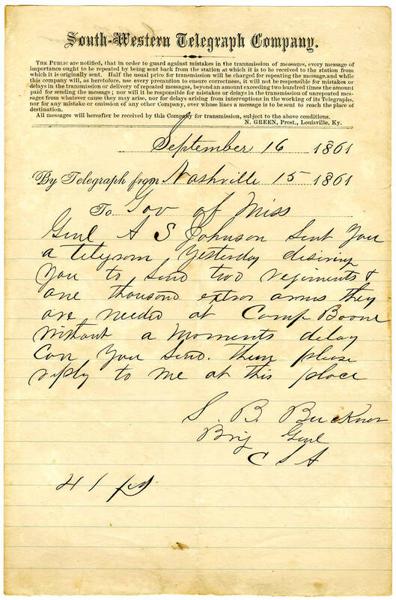 South-Western Telegraph Company.
THE PUBLIC are notified, that in order to guard against mistakes in the transmission of messages, every message of
importance ought to be repeated by being sent back from the station at which it is to be received to the station from
which it is originally sent. Half the usual price for transmission will be charged for repeating the message, and while
this company will, as heretofore, use every precaution to ensure correctness, it will not be responsible for mistakes or
delays in the transmission or delivery of repeated messages, beyond an amount exceeding two hundred times the amount
paid for sending the message; nor will it be responsible for mistakes or delays in the transmission of unrepeated mes-
sages from whatever cause they may arise, nor for delays arising from interruptions in the working of its Telegraphs,
nor for any mistake or omission of any other Company, over whose lines a message is to be sent to reach the place of
destination.
All messages will hereafter be received by this Company for transmission, subject to the above conditions.
N. GREEN, Prest., Louisville, Ky.
September 16 1861
By Telegraph from Nashville 15 1861
To Gov of Miss
Genl A S Johnson sent You
a telegram Yesterday desiring
You to send two regiments &
one thousand extra arms they
are needed at Camp Boone
without a moments delay
Can You send them please
reply to me at this place
S. B. Buckner
Brig Genl
C S A
41 pd